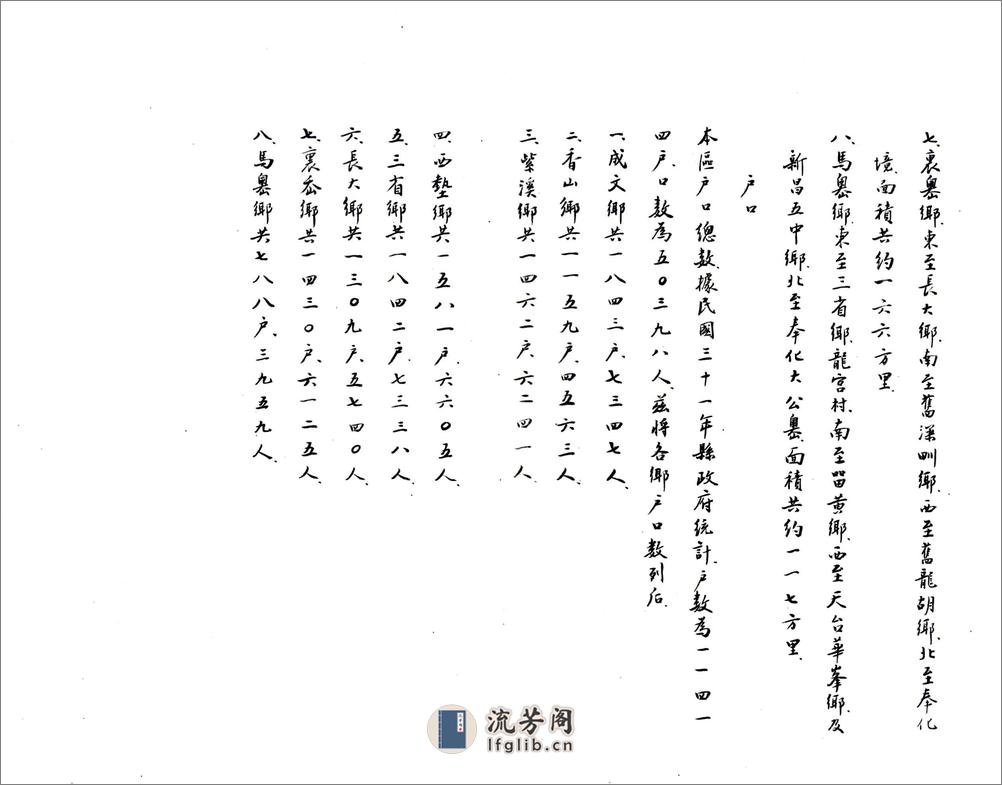 七、裏嶴鄉、東至長大鄉、南至舊深甽鄉、西至舊龍胡鄉、北至奉化
境、面積共約一六六方里、
八、馬嶴鄉、東至三省鄉、龍宮村、南至㽞黄鄉、西至天台華峯鄉、及
新昌五中鄉、北至奉化大公嶴、面積共約一一七方里、
户口
本區户口總數、據民國三十一年縣政府統計、户數為一一四一
四户、口数為五〇三九八人、兹將各鄉户口数列后、
一、成文鄉共一八四三户、七三四七人、
二、香山鄉共一一五九户、四五六三人、
三、紫溪鄉共一四六二户、六二四一人、
四、西墊鄉共一五八一户、六六〇五人、
五、三省鄉共一八四二户、七三三八人、
六、長大鄉共一三〇九户、五七四〇人、
七、裏岙鄉共一四三〇户、六一二五人、
八、馬嶴鄉共七八八户、三九五九人、
流芳阁
lfglib.cn